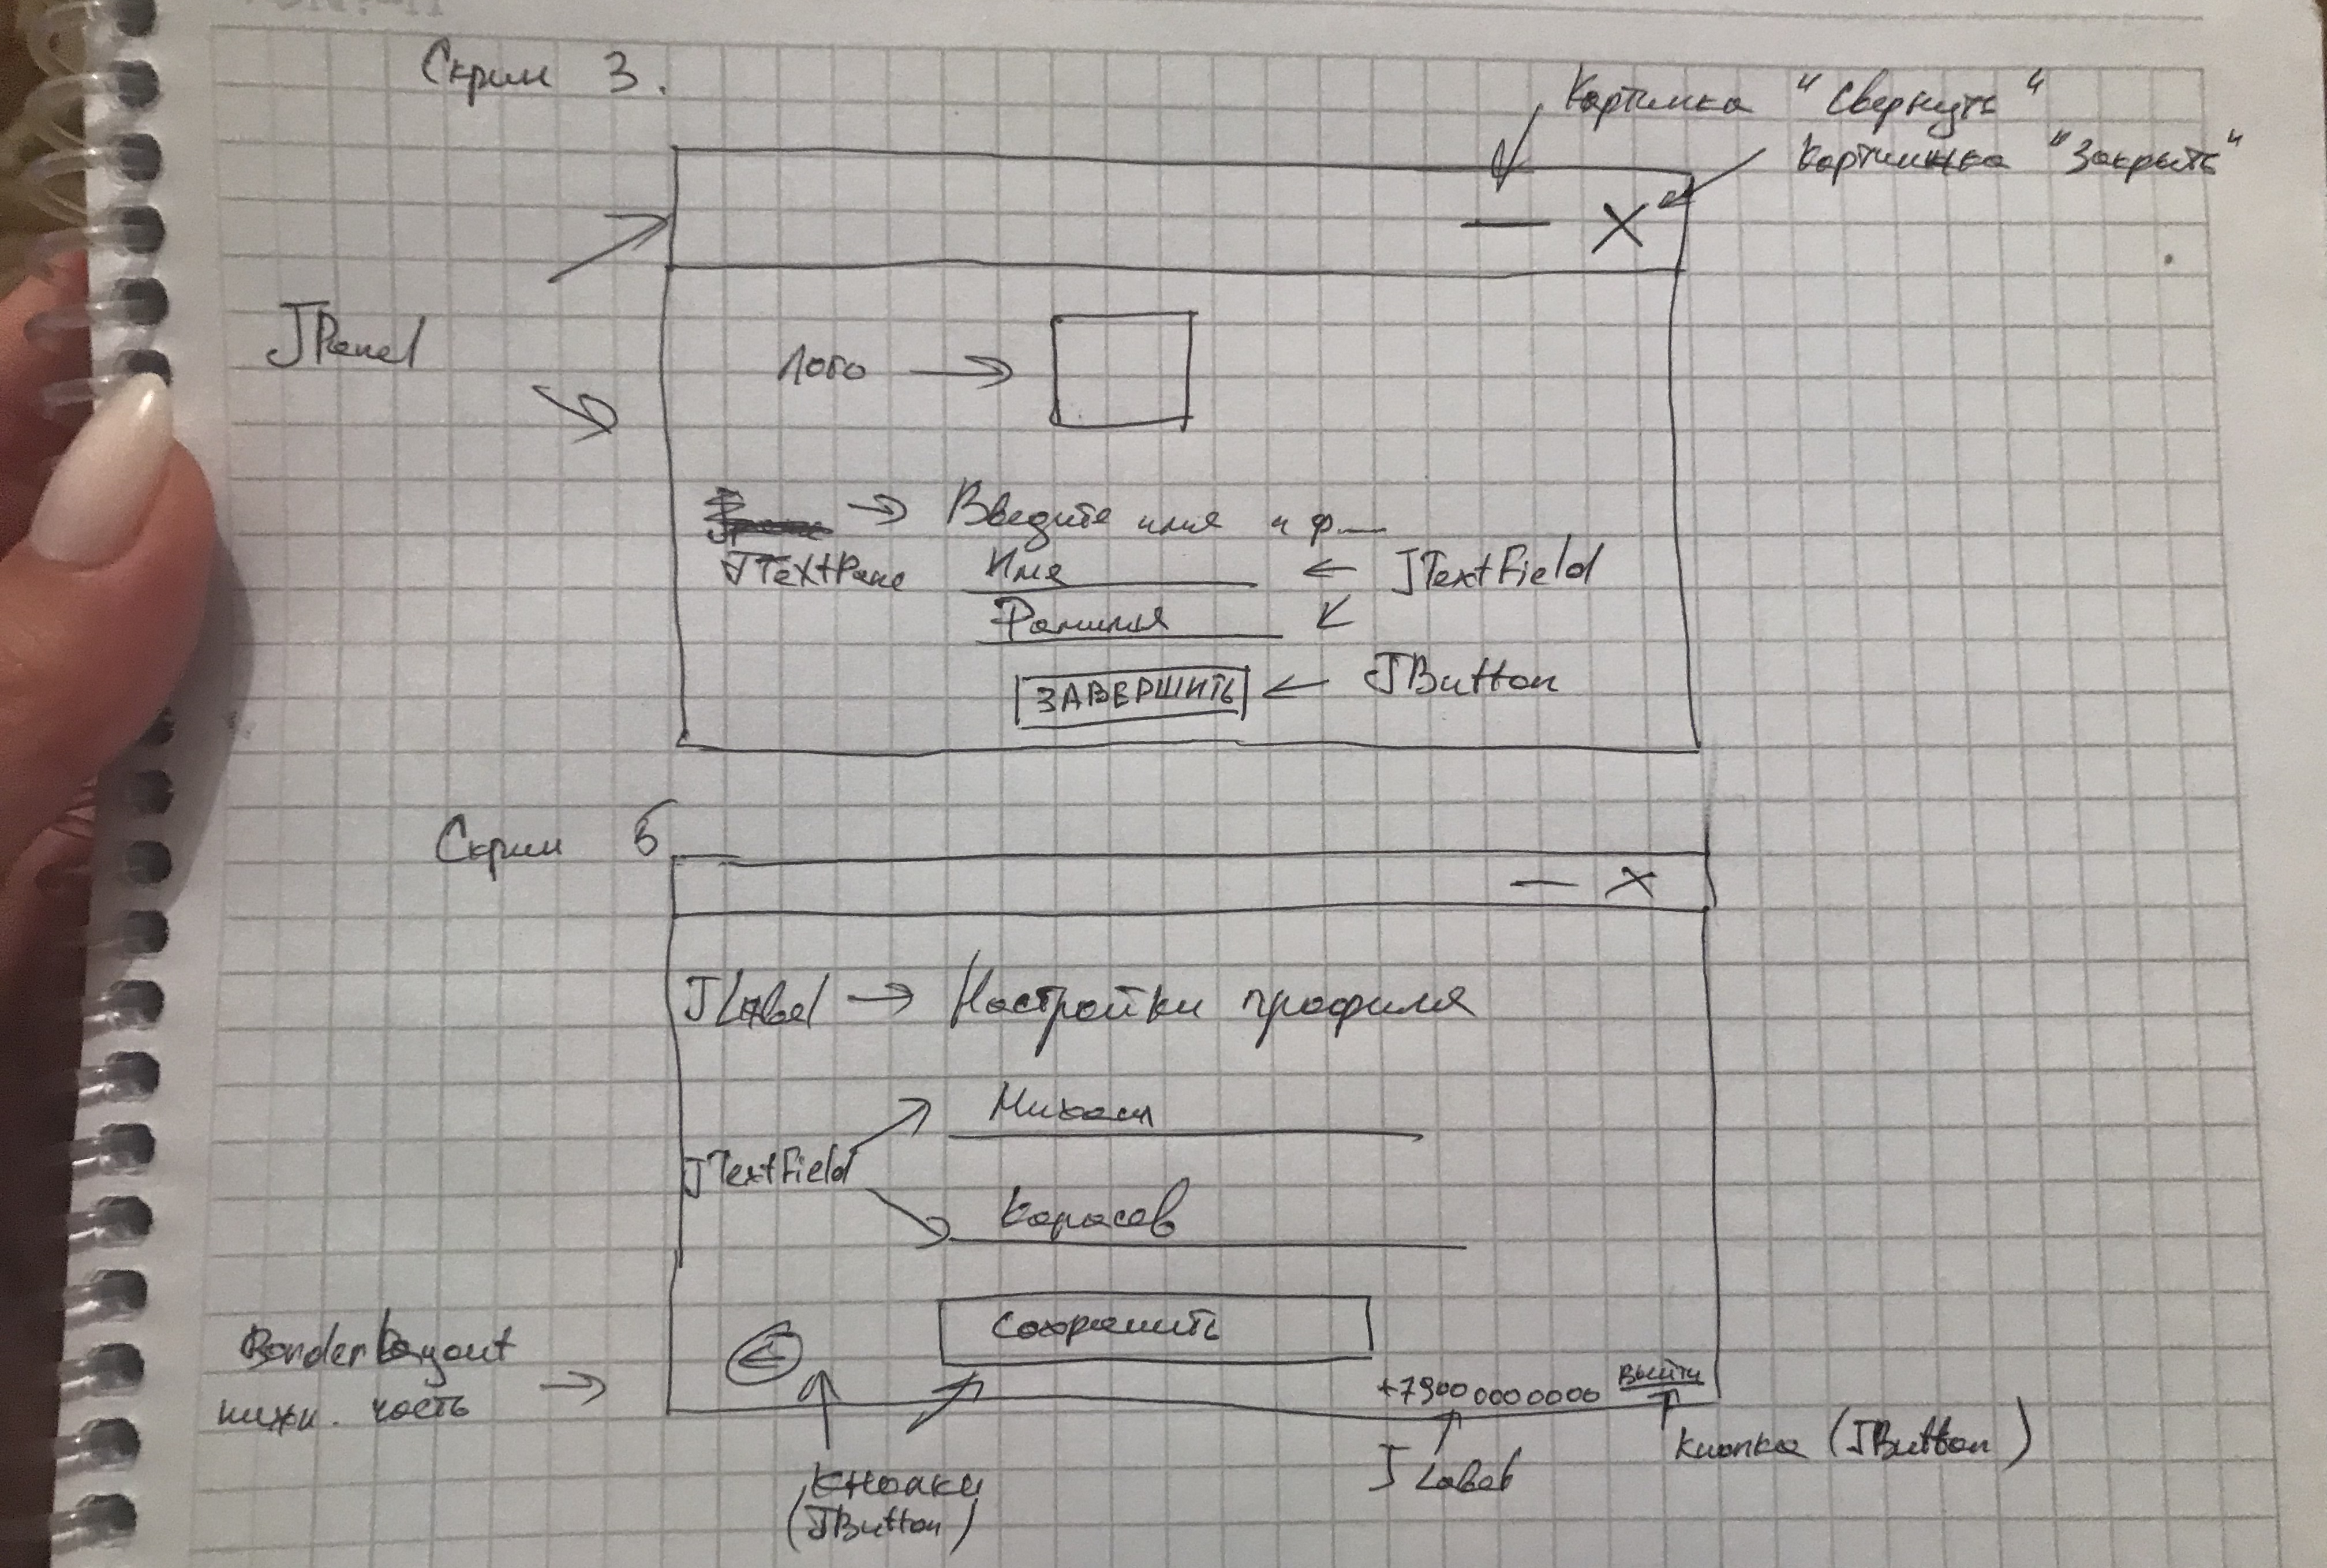 Скрин 3.
Картинка "Свернуть"
Картинка "Закрыть"
JPanel
Лого
Введите имя и ф
JTextPane
Имя
JTextField
Фамилия
ЗАВЕРШИТЬ
JButton
Скрин 6
JLabel
Настройки профиля
Михаил
JTextField
Карасев
BorderLayout
нижн. часть
Сохранить
+79000000000
Выйти
Кнопки
(JButton)
JLabel
Кнопка (JButton)